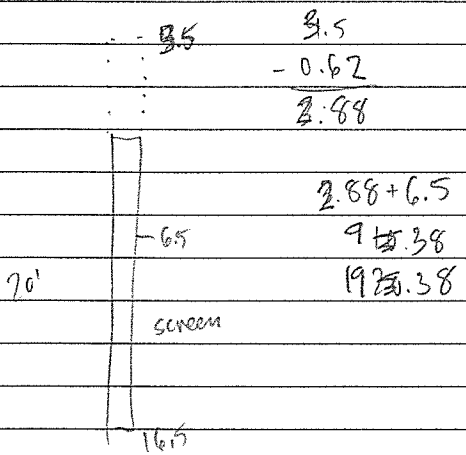 3.5
3.5
- 0.62
2.88
2.88 + 6.5
6.5
9.38
20'
19.38
screen
16.5